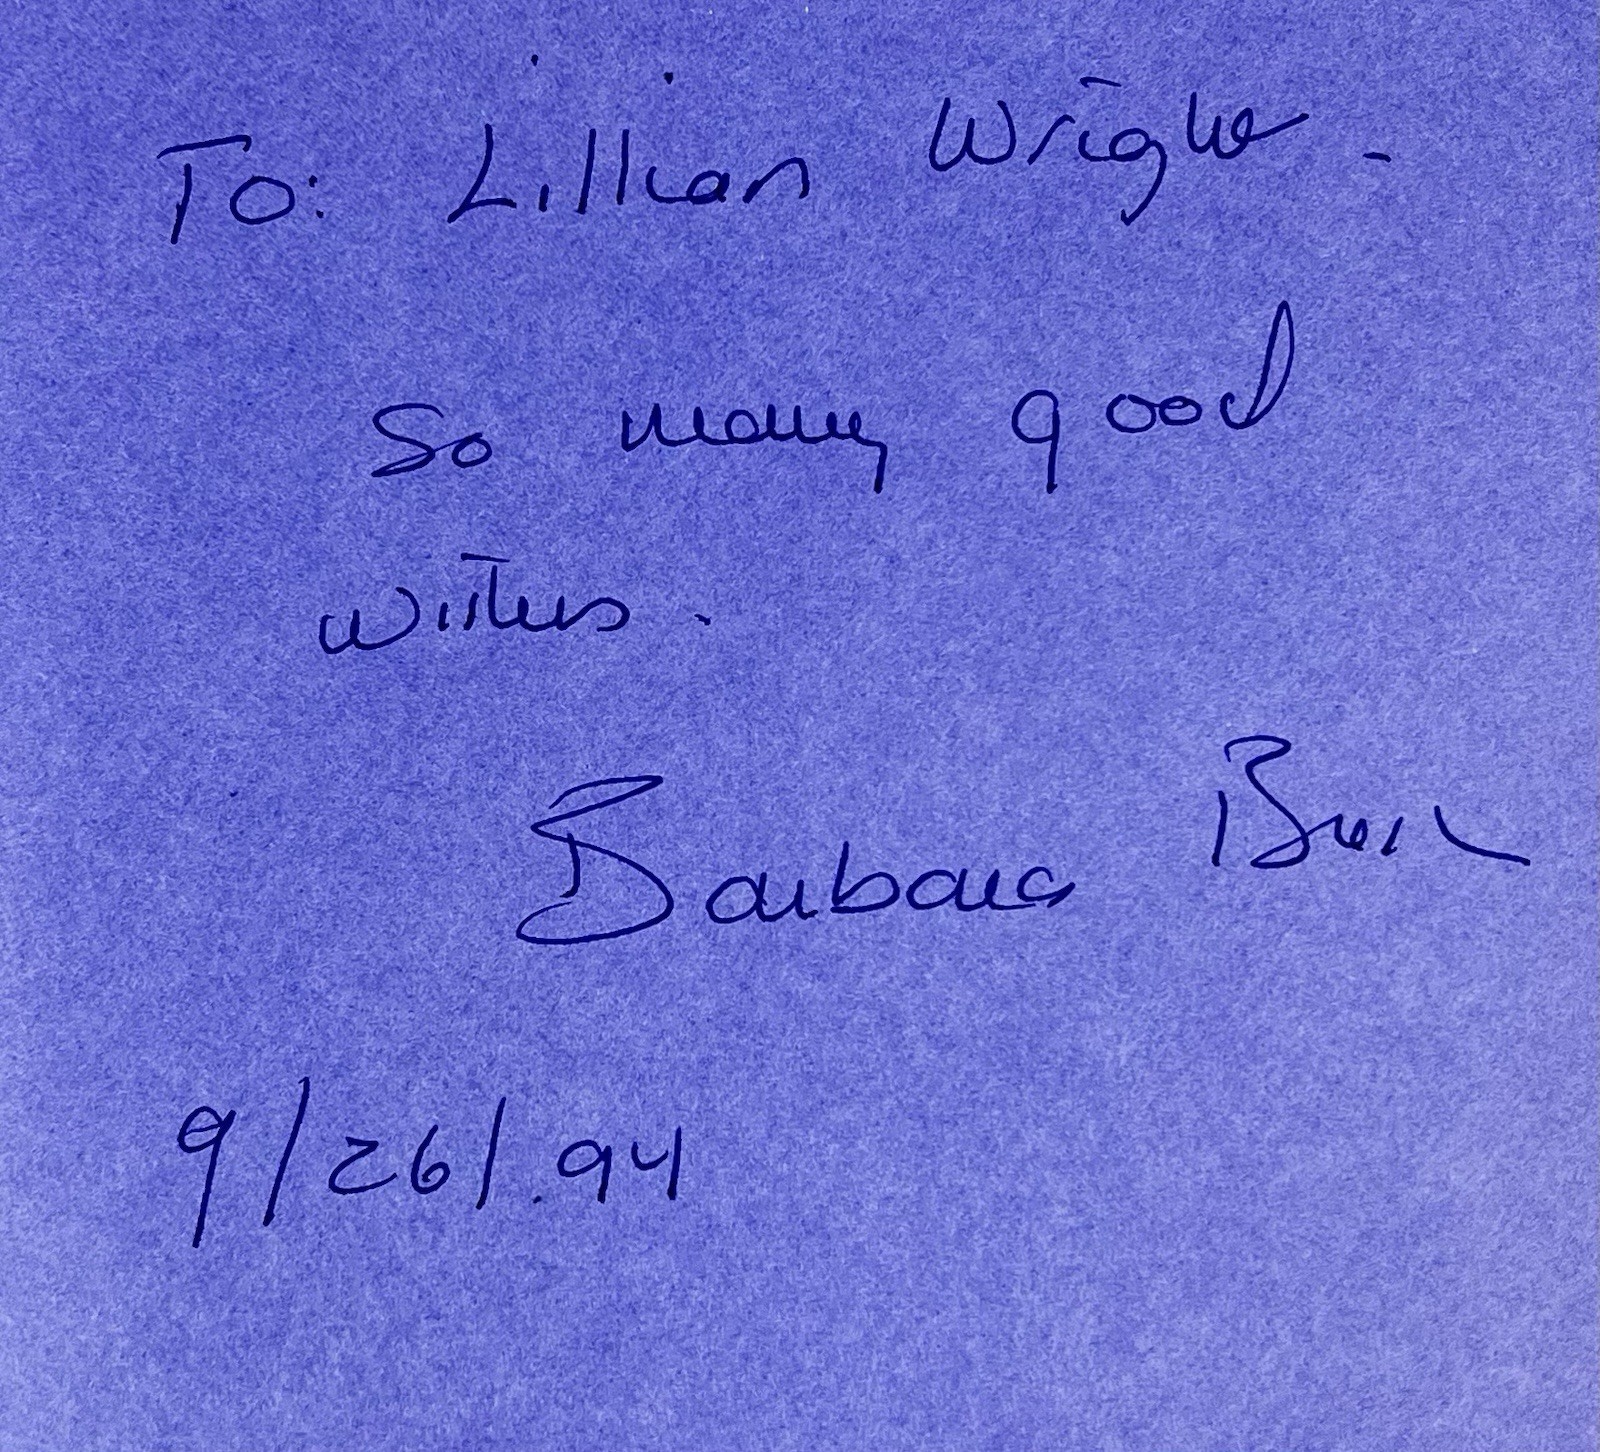 To: Lillian Wright -
So many good
wishes.
Barbara Bush
9/26/.94